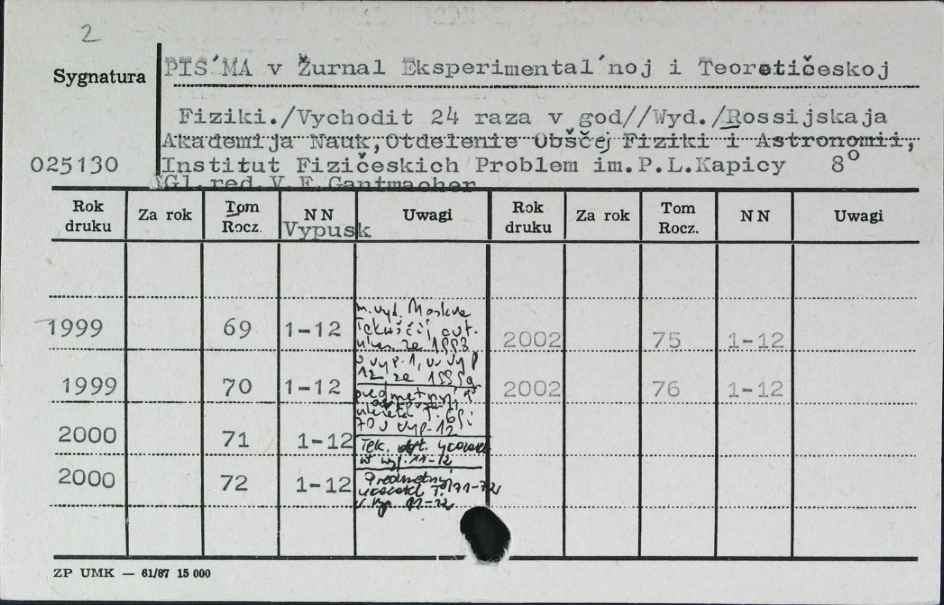 2
Sygnatura
PIS´MA v Žurnal Eksperimental´noj i Teoretičeskoj
Fiziki./Vychodit 24 raza v god//Wyd./Rossijskaja
Akademija Nauk,Otdelenie Obščej Fiziki i Astronomii,
025130 Institut Fizičeskich Problem im.P.L.Kapicy 8°
Gl.red.V.F.Gantmacher
Rok druku Za rok Tom Rocz. NN Uwagi Rok druku Za rok Tom Rocz. NN Uwagi
Vypusk
m.wyd. Moskva
1999 69 1-12 2002 75 1-12
v vyp.1, v vyp
12 za 1999g
1999 70 1-12 2002 76 1-12
70 v vyp.12
2000 71 1-12
Tek.
2000 72 1-12
Predmetnyj
T. 71-72
v vyp. 11-12
ZP UMK — 61/87 15 000